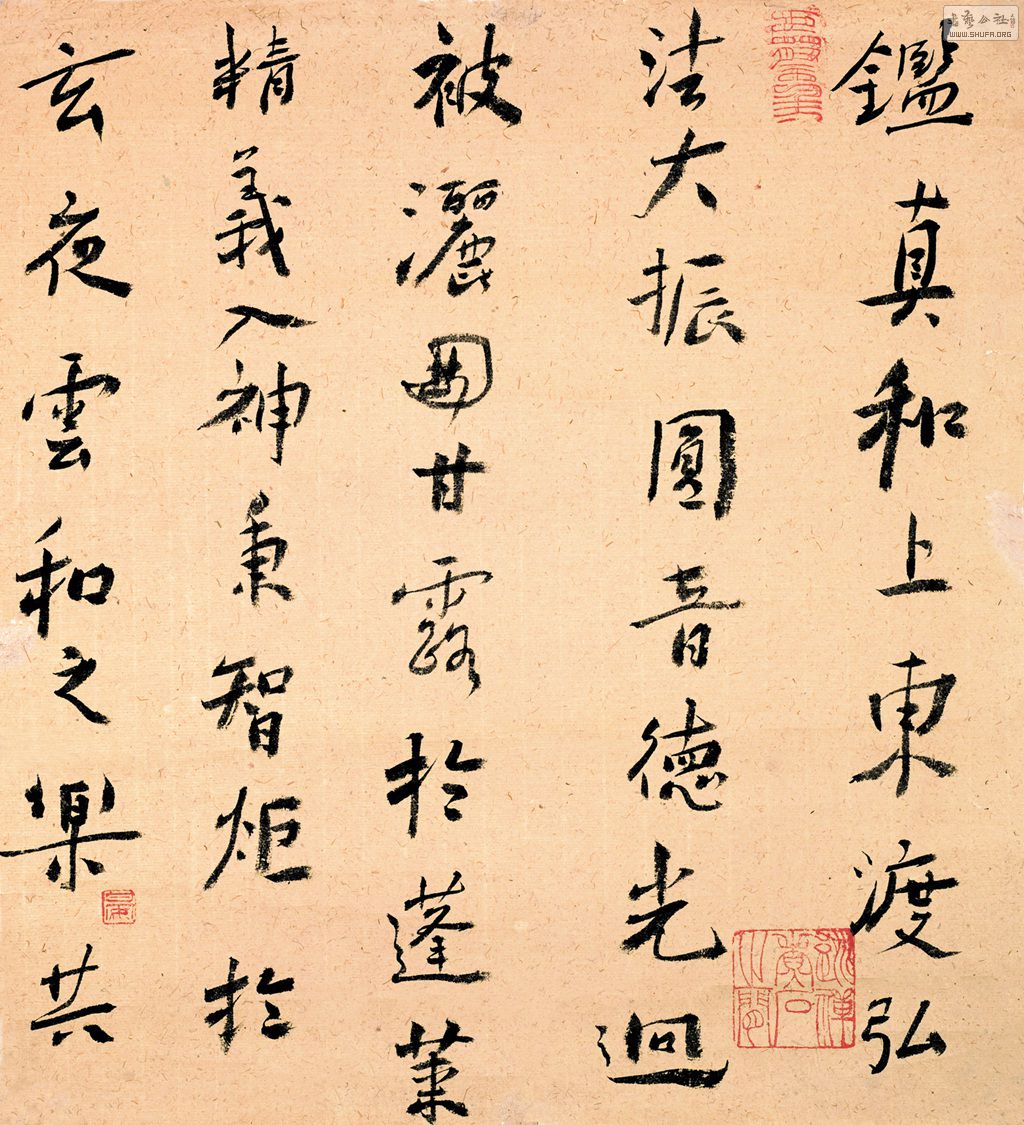 鑑真和上東渡弘
法大振圓音德光逈
被灑甘露於蓬萊
精義入神秉智炬於
玄夜雲和之樂共
书艺公社
WWW.SHUFA.ORG